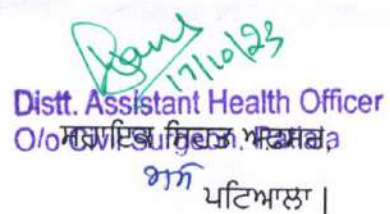 17/10/23
Distt. Assistant Health Officer
O/o Civil Surgeon, Patiala
ਸਹਾਇਕ ਸਿਹਤ ਅਫਸਰ,
ਪਟਿਆਲਾ |